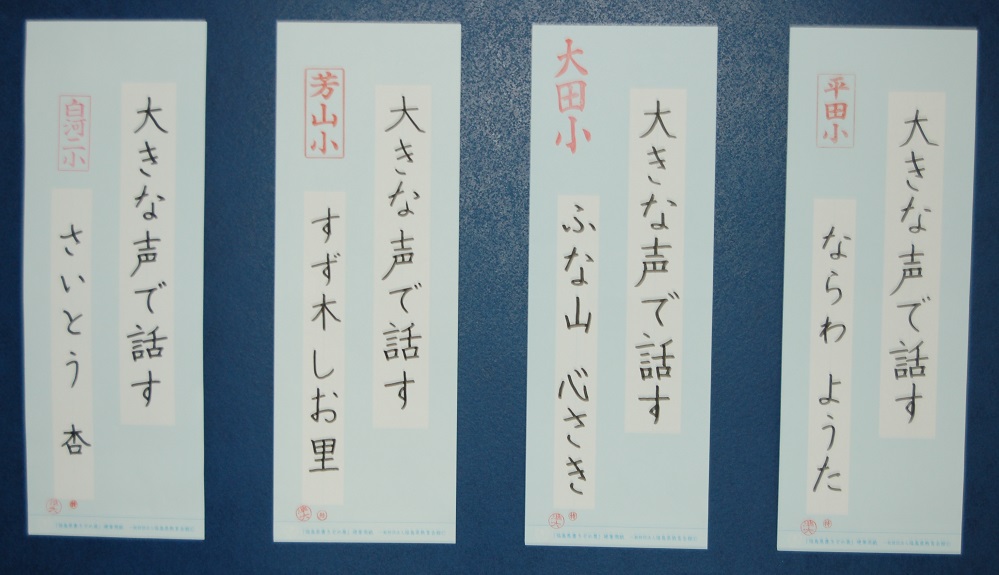 大きな声で話す
平田小
ならわ ようた
大きな声で話す
大田小
ふな山 心さき
大きな声で話す
芳山小
すず木 しお里
大きな声で話す
白河二小
さいとう 杏